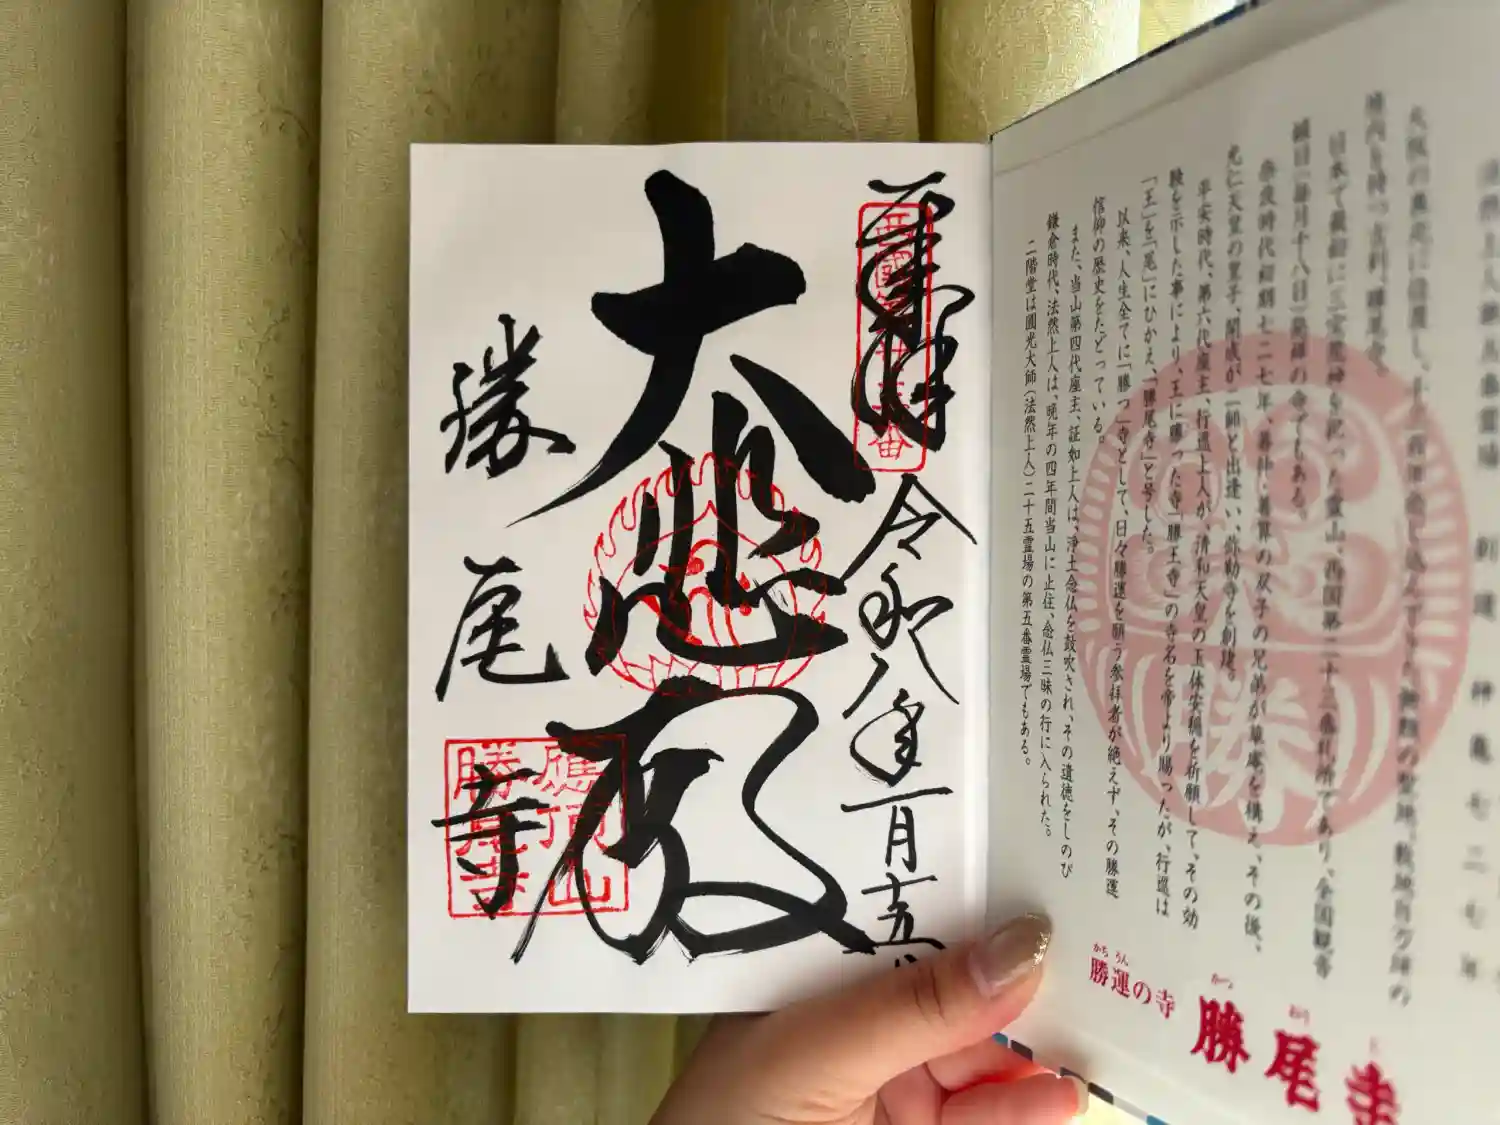 法然上人第五番霊場 創建 神亀七二七年
大阪の
境内を持つ古刹、勝尾寺。
日本で最初に三宝荒神を祀った霊山、西国第二十三番札所であり、全国観音
縁日「毎月十八日」発祥の寺でもある。
奈良時代初期七二七年、善仲・善算の双子の兄弟が草庵を構え、その後、
光仁天皇の皇子、開成が二師と出逢い、弥勒寺を創建。
平安時代、第六代座主、行巡上人が、清和天皇の玉体安穏を祈願して、その効
験を示した事により、王に勝った寺「勝王寺」の寺名を帝より賜ったが、行巡は
「王」を「尾」にひかえ、「勝尾寺」と号した。
以来、人生全てに「勝つ」寺として、日々勝運を願う参拝者が絶えず、その勝運
信仰の歴史をたどっている。
また、当山第四代座主、証如上人は、浄土念仏を鼓吹され、その遺徳をしのび
鎌倉時代、法然上人は、晩年の四年間当山に止住、念仏三昧の行に入られた。
二階堂は圓光大師(法然上人)二十五霊場の第五番霊場でもある。
かちうん
勝運の寺
かつ おう じ
勝尾寺
勝
奉拝
西國第廿三番
令和八年一月十五日
大悲殿
勝尾寺
應頂山
勝尾寺